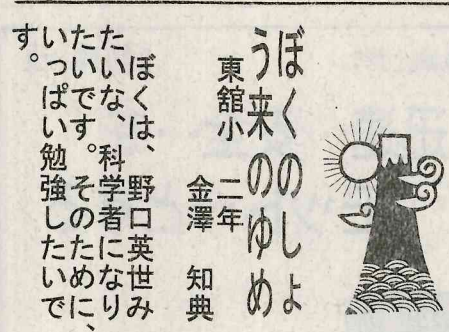 ぼくのしょ
う来のゆめ
東舘小　二年
金澤　知典
ぼくは、野口英世み
たいな、科学者になり
たいです。そのために、
いっぱい勉強したいで
す。